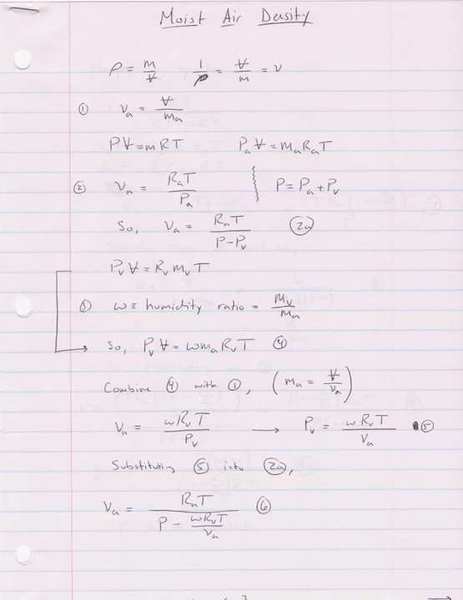 Moist Air Density
ρ = m/V 1/ρ = V/m = v
① va = V/ma
PV = mRT PaV = maRaT
② va = RaT/Pa P = Pa + Pv
So, va = RaT/(P-Pv) ②a
PvV = RvmvT
③ ω ≡ humidity ratio = mv/ma
So, PvV = ωmaRvT ④
Combine ④ with ①, (ma = V/va)
va = ωRvT/Pv → Pv = ωRvT/va ⑤
Substituting ⑤ into ②a,
va = RaT/(P - ωRvT/va) ⑥